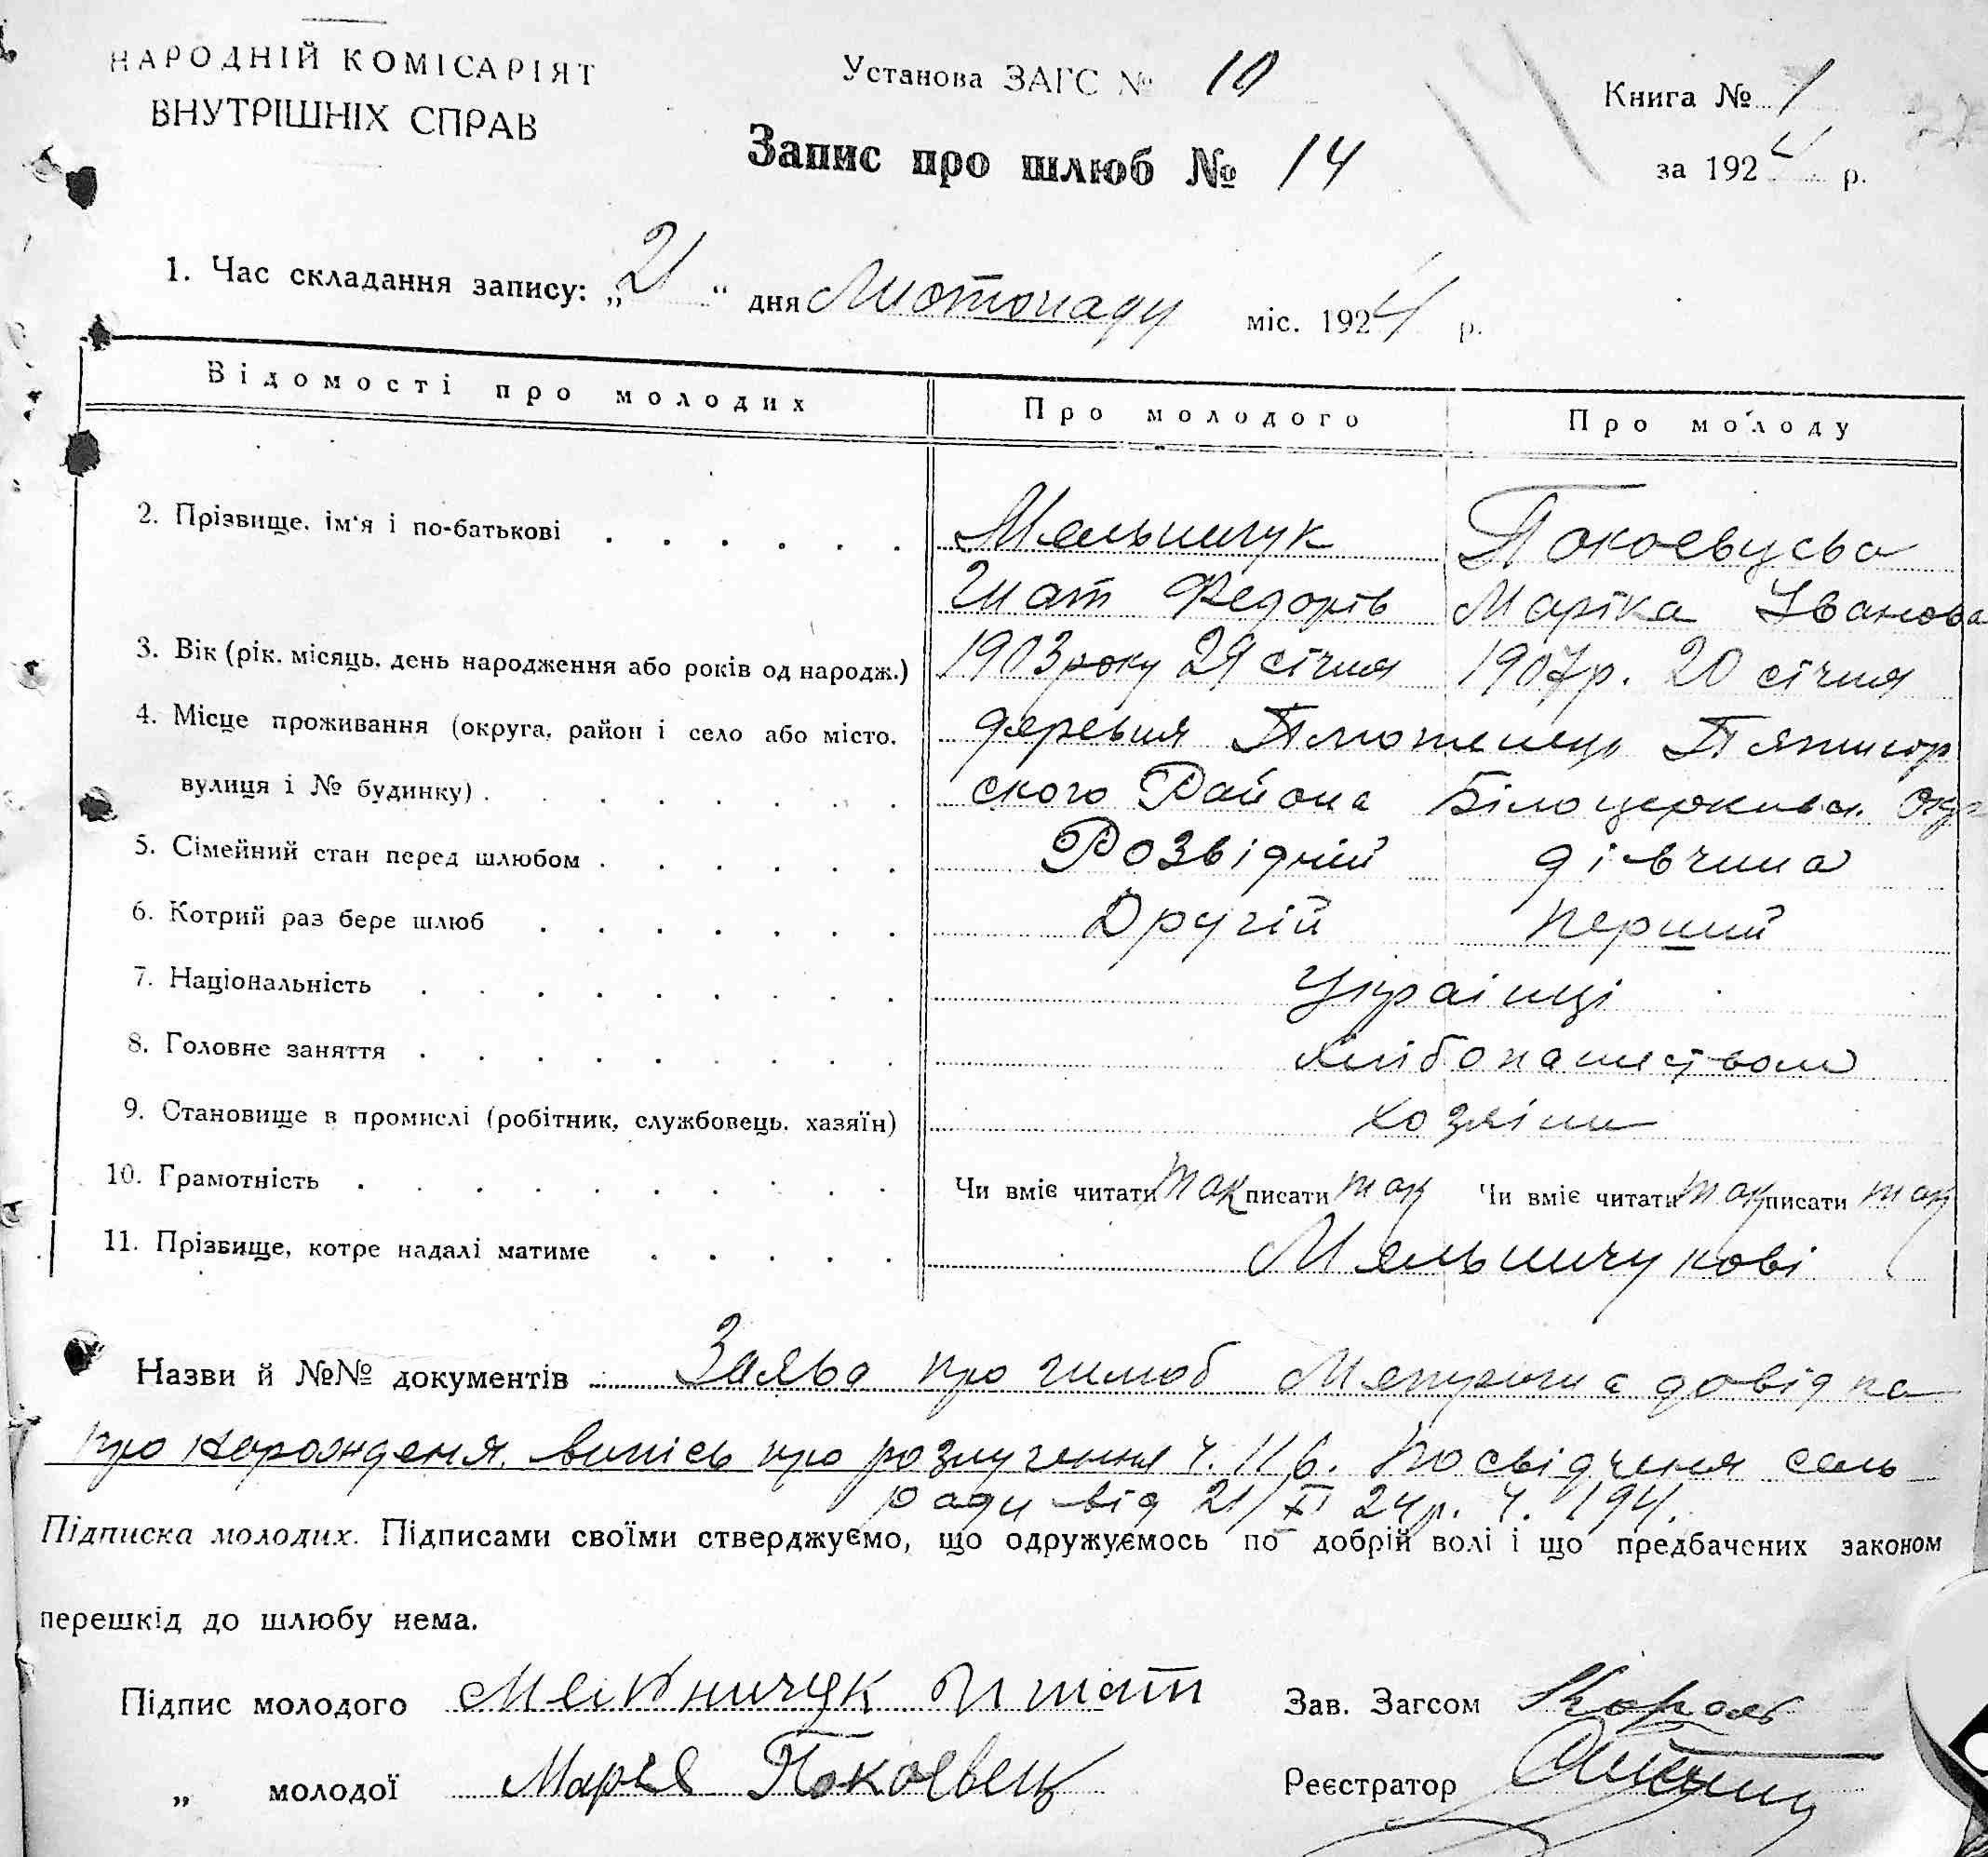 НАРОДНІЙ КОМІСАРІЯТ
ВНУТРІШНІХ СПРАВ
Установа ЗАГС № 10
Книга № 1
за 1924 р.
Запис про шлюб № 14
1. Час складання запису: „21“ дня Листопаду міс. 1924 р.
Відомості про молодих Про молодого Про молоду
2. Прізвище, ім'я і по-батькові Мельничук
Гнат Федорів Маріка Іванова
3. Вік (рік, місяць, день народження або років од народж.) 1903 року 29 січня 1907р. 20 січня
4. Місце проживання (округа, район і село або місто, деревня Плютенець Пятигор
вулиця і № будинку) ского Района Білоцерківск. Окр
5. Сімейний стан перед шлюбом Розвідний дівчина
6. Котрий раз бере шлюб Другій перший
7. Національність Українці
8. Головне заняття хлібопашеством
9. Становище в промислі (робітник, службовець, хазяїн) хозяїни
10. Грамотність Чи вміє читати так писати так Чи вміє читати так писати так
11. Прізвище, котре надалі матиме Мельничукові
Назви й №№ документів Заява про шлюб довідка
про нарожденя. випісь про розлучення ч. 116. Посвідченя сель
ради від 21/XI 24р. ч. 194.
Підписка молодих. Підписами своїми стверджуємо, що одружуємось по добрій волі і що предбачених законом
перешкід до шлюбу нема.
Підпис молодого Мельничук Гнат Зав. Загсом Король
„ молодої Марія Покоевец Реєстратор